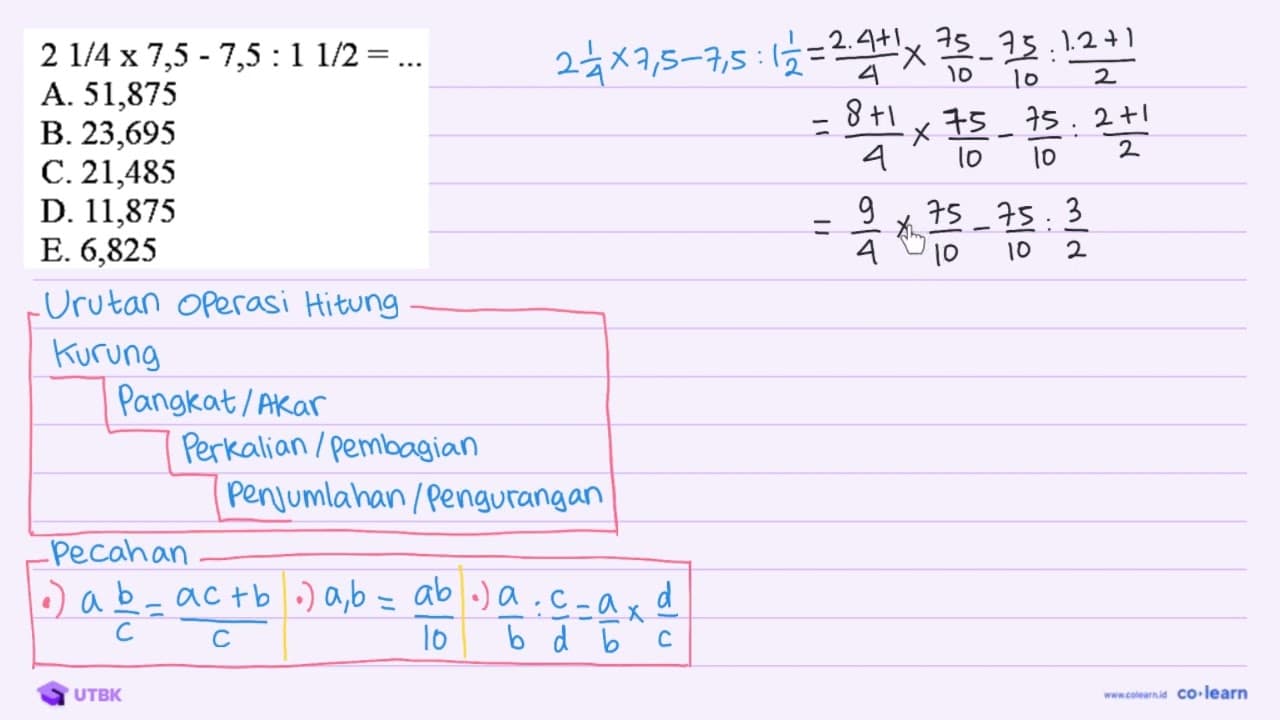 2 1/4 x 7,5 - 7,5 : 1 1/2 = ...
A. 51,875
B. 23,695
C. 21,485
D. 11,875
E. 6,825
2 1/4 × 7,5 - 7,5 : 1 1/2 = 2.4+1/4 × 75/10 - 75/10 : 1.2+1/2
= 8+1/4 × 75/10 - 75/10 : 2+1/2
= 9/4 × 75/10 - 75/10 : 3/2
Urutan Operasi Hitung
Kurung
Pangkat/Akar
Perkalian/Pembagian
Penjumlahan/Pengurangan
Pecahan
•) a b/c = ac+b/c •) a,b = ab/10 •) a/b : c/d = a/b × d/c
UTBK
www.colearn.id co·learn